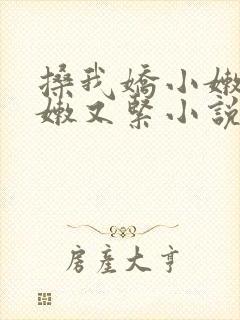 搡我嬌小嫩
嫩又緊小說
房產大亨